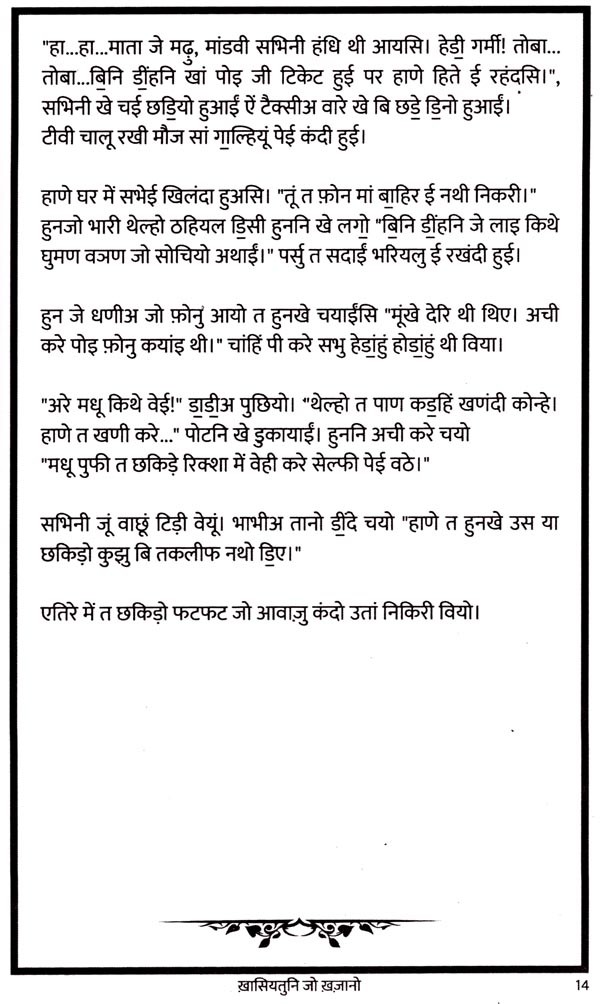 "हा...हा...माता जे मढ़ु, मांडवी सभिनी हंधि थी आयसि। हेॾी गर्मी! तोबा...
तोबा...ॿिनि ॾींहनि खां पोइ जी टिकेट हुई पर हाणे हिते ई रहंदसि।",
सभिनी खे चई छॾियो हुआईं ऐं टैक्सीअ वारे खे बि छॾे ॾिनो हुआईं।
टीवी चालू रखी मौज सां ॻाल्हियूं पेई कंदी हुई।

हाणे घर में सभेई खिलंदा हुअसि। "तूं त फ़ोन मां ॿाहिर ई नथी निकरी।"
हुनजो भारी थेल्हो ठहियल ॾिसी हुननि खे लॻो "ॿिनि ॾींहनि जे लाइ किथे
घुमण वञण जो सोचियो अथाईं।" पर्सु त सदाईं भरियलु ई रखंदी हुई।

हुन जे धणीअ जो फ़ोनु आयो त हुनखे चयाईंसि "मूंखे देरि थी थिए। अची
करे पोइ फ़ोनु कयांइ थी।" चांहिं पी करे सभु हेॾांहुं होॾांहुं थी विया।

"अरे मधू किथे वेई!" ॾाॾीअ पुछियो। "थेल्हो त पाण कॾहिं खणंदी कोन्हे।
हाणे त खणी करे..." पोटनि खे डुकायाईं। हुननि अची करे चयो
"मधू पुफी त छकिड़े रिक्शा में वेही करे सेल्फी पेई वठे।"

सभिनी जूं वाछूं टिड़ी वेयूं। भाभीअ तानो ॾींदे चयो "हाणे त हुनखे उस या
छकिड़ो कुझु बि तकलीफ नथो ॾिए।"

एतिरे में त छकिड़ो फटफट जो आवाज़ु कंदो उतां निकिरी वियो।

ख़ासियतुनि जो ख़ज़ानो 14